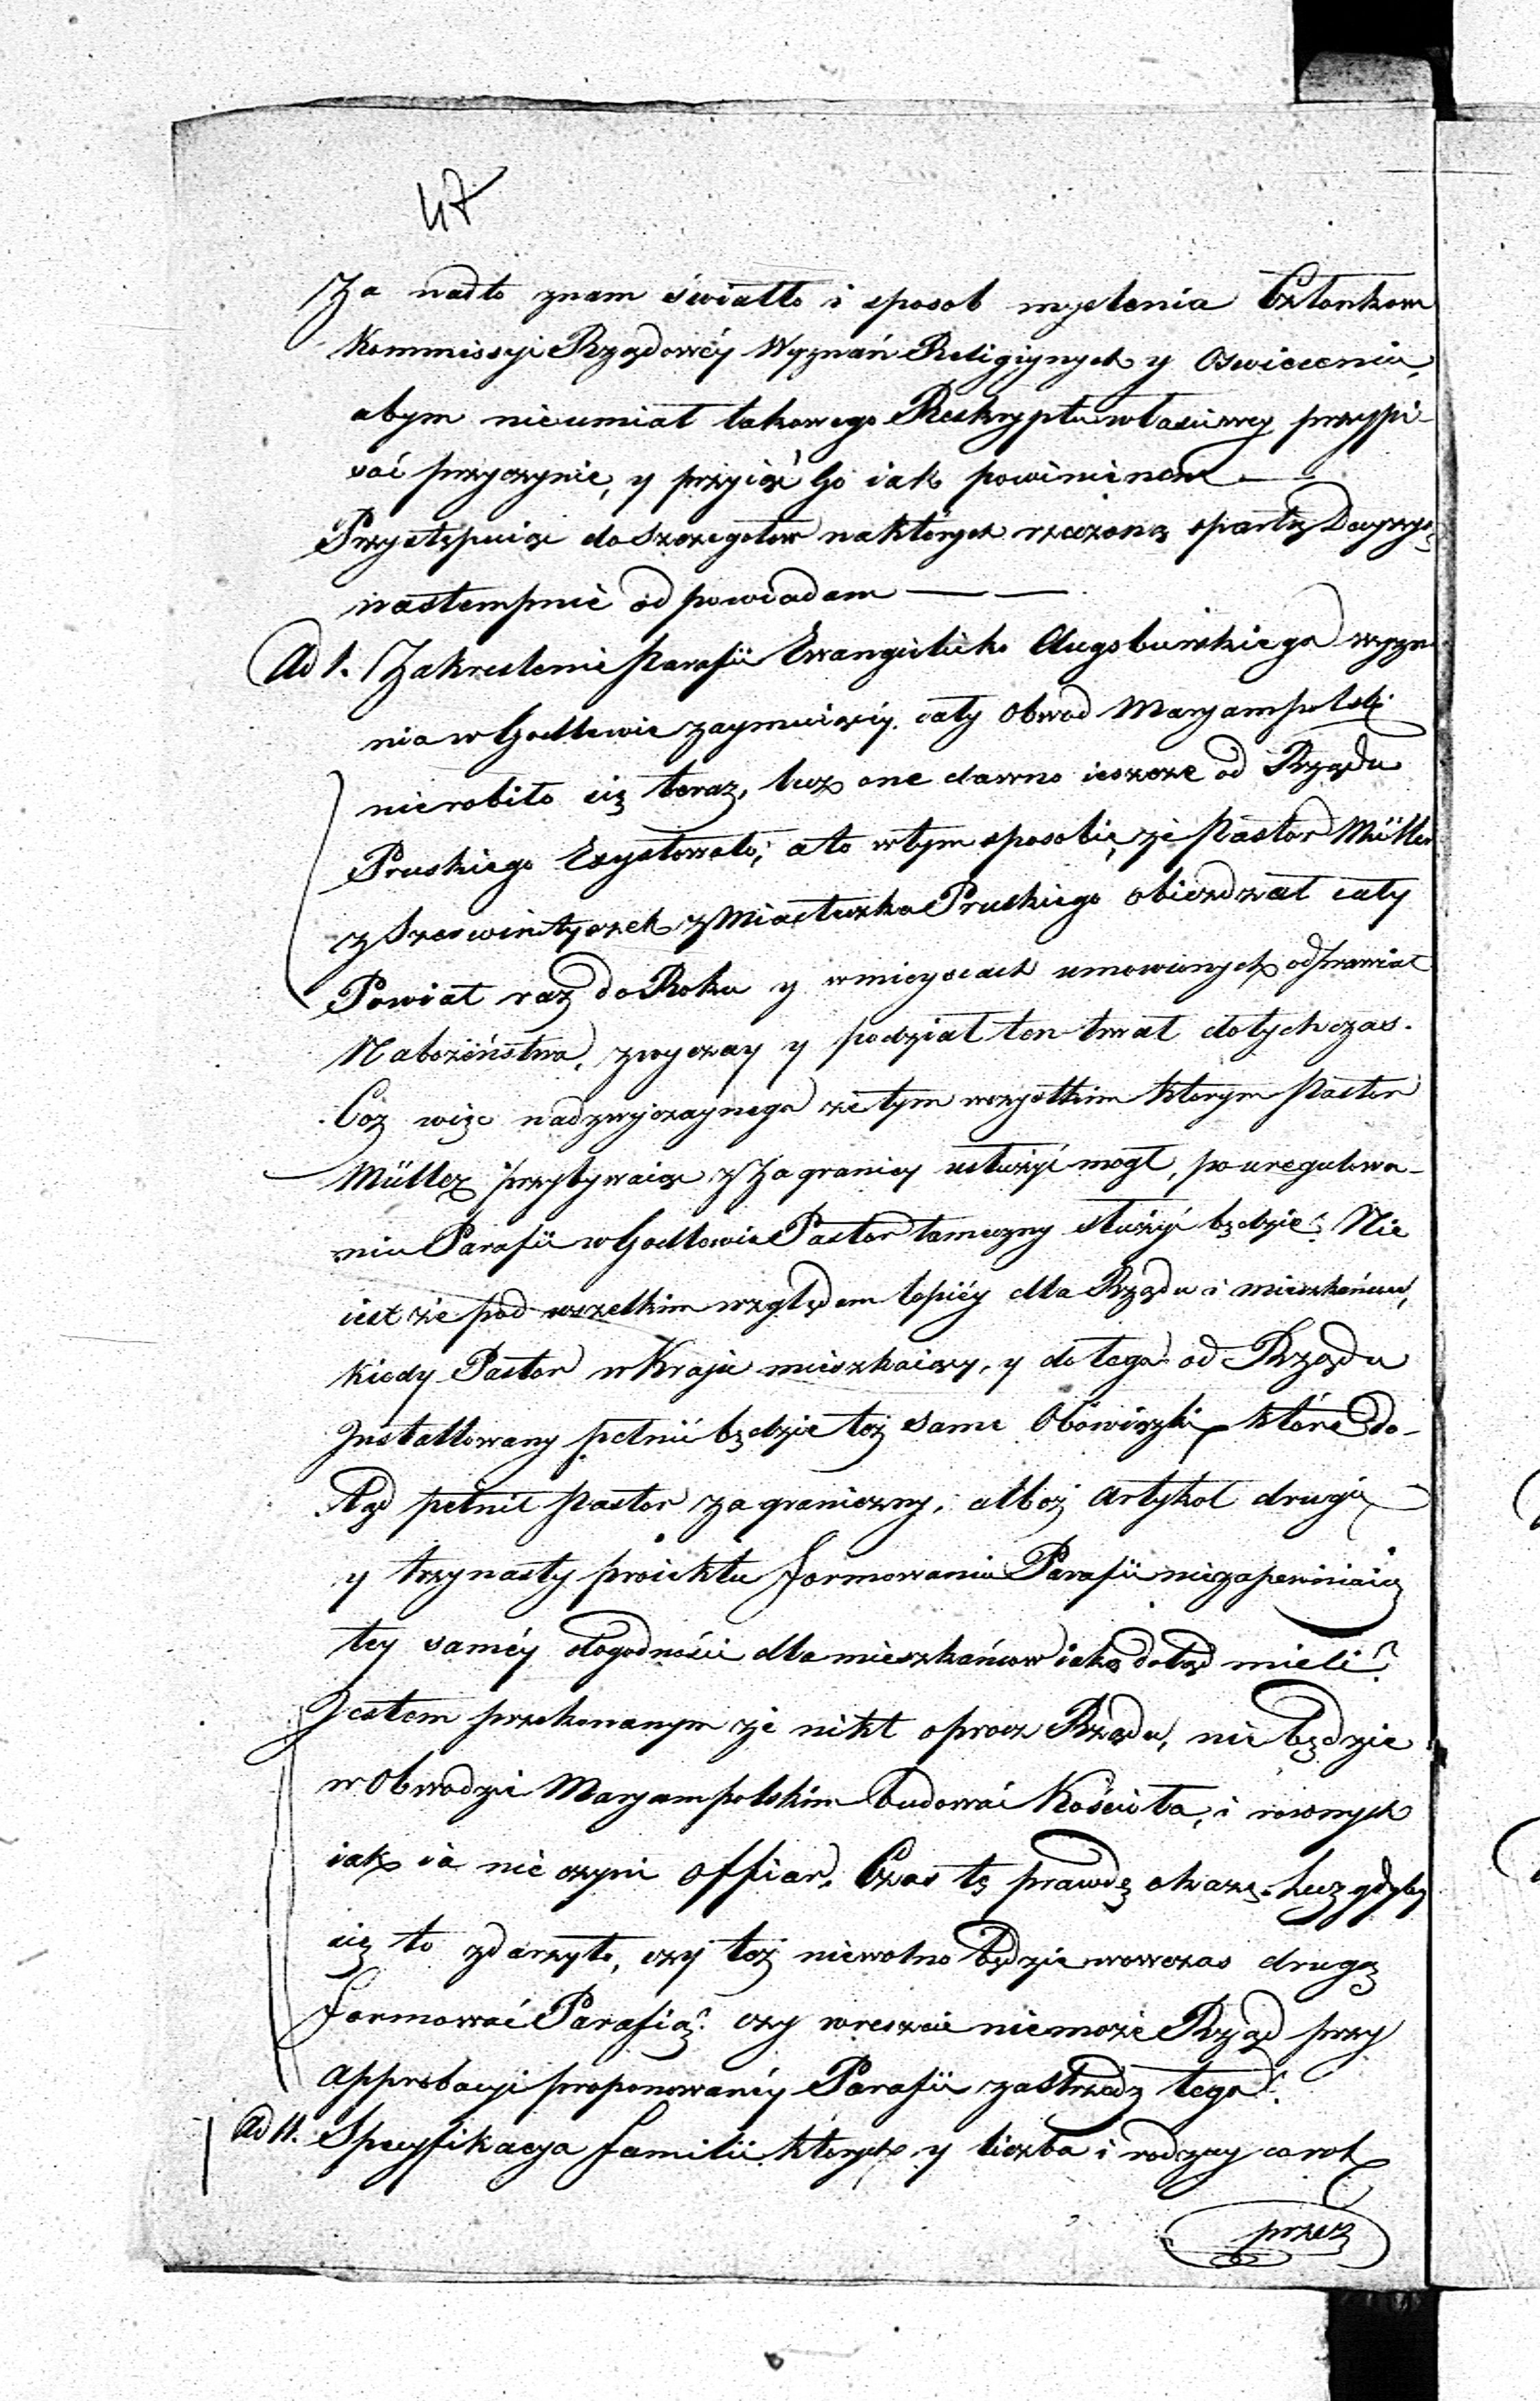 47
Za nadto znam światło i sposob myslenia Członkow
Kommissyi Rządowéy Wyznań Religiynych y Oswiecenia,
abym nieumiał takowego Reskryptu własciwey przypi-
sać przyczynie, y przyiąć Go iak powinienem —
Przystępuiąc do szczegołow na których rzeczona oparta Decyzya
nastempnie odpowiadam — —
Ad 1. Zakreslenie Parafii Ewangelicko Augsburskiego wyzna
nia w Godlewie zaymuiącéy cały Obwod Maryampolski
nierobiło się teraz, lecz one dawno ieszcze od Rządu
Pruskiego Exystowało; a to w tym sposobie, że Pastor Müller
z Szerwintyszek z Miasteczka Pruskiego obiezdzał cały
Powiat raz do Roku y w mieyscach umowionych odprawiał
Nabożeństwa, zwyczay y podział ten trwał dotychczas.
Coż więc nadzwyczaynego że tym wszystkim ktorym Pastor
Müller przybywaiąc z Zagranicy usłużyć mogł, po uregulowa-
niu Parafii w Godlewie Pastor tameczny służyć będzie? Nie
iest że pod wszelkim względem lepiéy dla Rządu i mieszkańcow,
kiedy Pastor w Kraju mieszkaiący, y do tego od Rządu
Installowany pełnić będzie też same Obowiązki, które do-
tąd pełnił Pastor zagraniczny; alboż Artykoł drugi
y trzynasty proiektu formowania Parafii niezapewniaią
tey saméy dogodności dla mieszkańcow iaką dotąd mieli?
Jestem przekonanym że nikt oprocz Rządu, nie będzie
w Obwodzie Maryampolskim budować Kościoła, i rownych
iak ia nie czyni offiar. Czas tę prawdę okaże. Lecz gdyby
się to zdarzyło, czy też niewolno będzie wowczas drugą
formować Parafią? czy wreszcie niemoże Rząd przy
approbacyi proponowanéy Parafii zastrzedz tego?
Ad II. Specyfikacya familii ktorych y liczba i rodzay co rok
przez